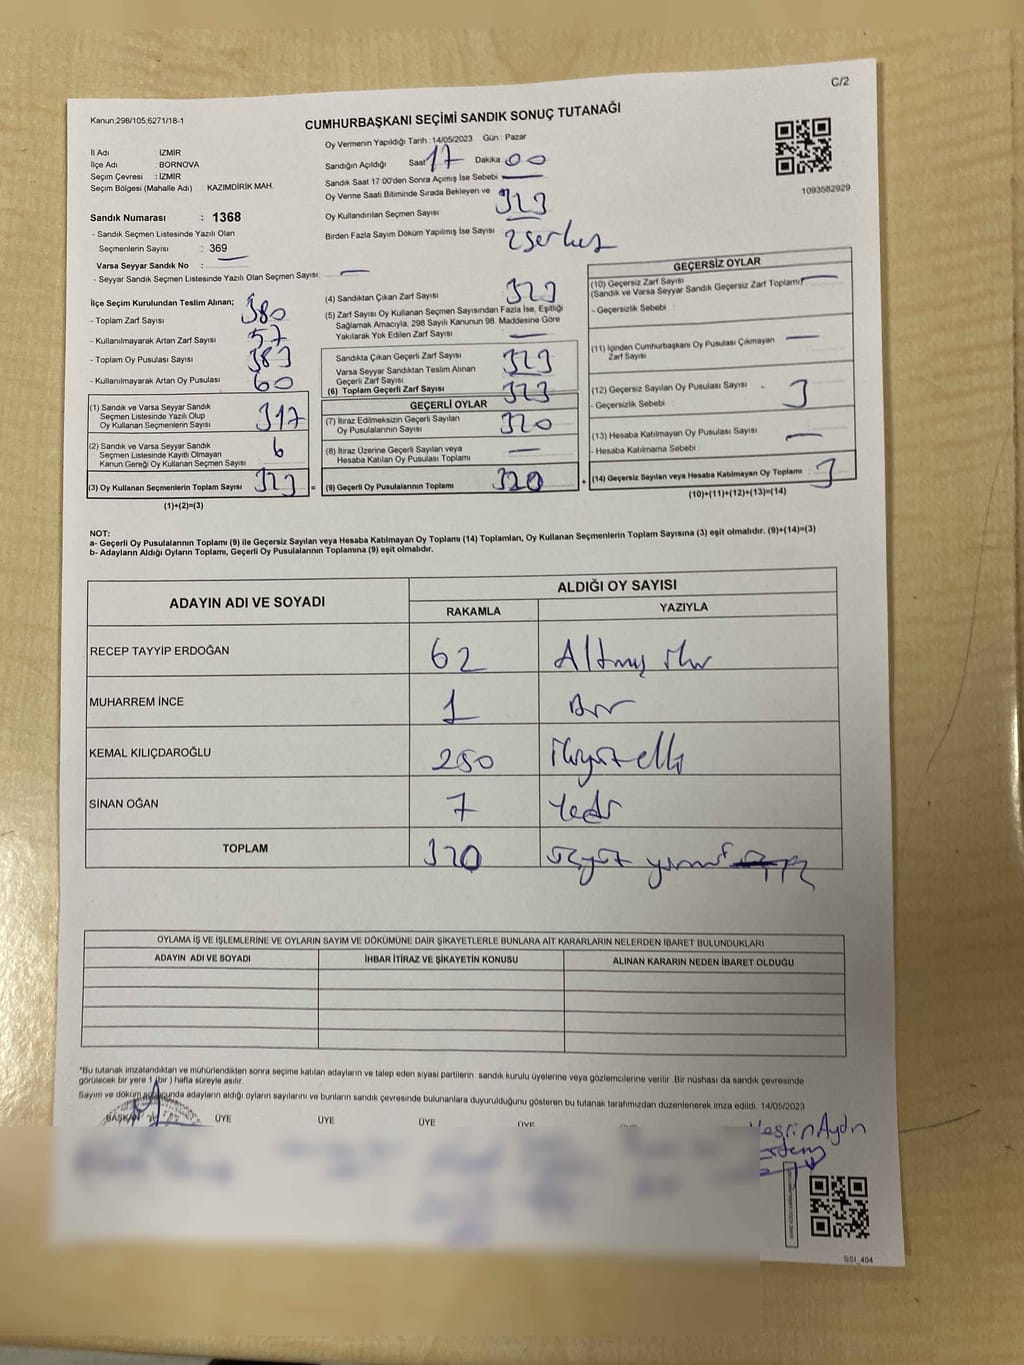 C/2
Kanun:298/105,6271/18-1
CUMHURBAŞKANI SEÇİMİ SANDIK SONUÇ TUTANAĞI
Oy Vermenin Yapıldığı Tarih :14/05/2023 Gün : Pazar
İl Adı : İZMİR
İlçe Adı : BORNOVA
Seçim Çevresi : İZMİR
Seçim Bölgesi (Mahalle Adı) : KAZIMDİRİK MAH.
Sandığın Açıldığı Saat 17 Dakika 00
Sandık Saat 17:00'den Sonra Açımış İse Sebebi
Oy Verme Saati Bitiminde Sırada Bekleyen ve
Oy Kullandırılan Seçmen Sayısı 323
Birden Fazla Sayım Döküm Yapılmış İse Sayısı
1093582929
Sandık Numarası : 1368
- Sandık Seçmen Listesinde Yazılı Olan
Seçmenlerin Sayısı : 369
Varsa Seyyar Sandık No :
- Seyyar Sandık Seçmen Listesinde Yazılı Olan Seçmen Sayısı:
İlçe Seçim Kurulundan Teslim Alınan;
- Toplam Zarf Sayısı 380
- Kullanılmayarak Artan Zarf Sayısı 57
- Toplam Oy Pusulası Sayısı 383
- Kullanılmayarak Artan Oy Pusulası 60
(1) Sandık ve Varsa Seyyar Sandık
Seçmen Listesinde Yazılı Olup
Oy Kullanan Seçmenlerin Sayısı 317
(2) Sandık ve Varsa Seyyar Sandık
Seçmen Listesinde Kayıtlı Olmayan
Kanun Gereği Oy Kullanan Seçmen Sayısı 6
(3) Oy Kullanan Seçmenlerin Toplam Sayısı 323 =
(1)+(2)=(3)
(4) Sandıktan Çıkan Zarf Sayısı 323
(5) Zarf Sayısı Oy Kullanan Seçmen Sayısından Fazla İse, Eşitliği
Sağlamak Amacıyla, 298 Sayılı Kanunun 98. Maddesine Göre
Yakılarak Yok Edilen Zarf Sayısı
Sandıkta Çıkan Geçerli Zarf Sayısı 323
Varsa Seyyar Sandıktan Teslim Alınan
Geçerli Zarf Sayısı
(6) Toplam Geçerli Zarf Sayısı 323
GEÇERLİ OYLAR
(7) İtiraz Edilmeksizin Geçerli Sayılan
Oy Pusulalarının Sayısı 320
(8) İtiraz Üzerine Geçerli Sayılan veya
Hesaba Katılan Oy Pusulası Toplamı
(9) Geçerli Oy Pusulalarının Toplamı 320 +
GEÇERSİZ OYLAR
(10) Geçersiz Zarf Sayısı
(Sandık ve Varsa Seyyar Sandık Geçersiz Zarf Toplamı)
- Geçersizlik Sebebi
(11) İçinden Cumhurbaşkanı Oy Pusulası Çıkmayan
Zarf Sayısı
(12) Geçersiz Sayılan Oy Pusulası Sayısı 3
- Geçersizlik Sebebi
(13) Hesaba Katılmayan Oy Pusulası Sayısı
- Hesaba Katılmama Sebebi
(14) Geçersiz Sayılan veya Hesaba Katılmayan Oy Toplamı 3
(10)+(11)+(12)+(13)=(14)
NOT:
a- Geçerli Oy Pusulalarının Toplamı (9) ile Geçersiz Sayılan veya Hesaba Katılmayan Oy Toplamı (14) Toplamları, Oy Kullanan Seçmenlerin Toplam Sayısına (3) eşit olmalıdır. (9)+(14)=(3)
b- Adayların Aldığı Oyların Toplamı, Geçerli Oy Pusulalarının Toplamına (9) eşit olmalıdır.
ADAYIN ADI VE SOYADI ALDIĞI OY SAYISI
RAKAMLA YAZIYLA
RECEP TAYYİP ERDOĞAN 62 Altmış iki
MUHARREM İNCE 1 Bir
KEMAL KILIÇDAROĞLU 250 ikiyüz elli
SİNAN OĞAN 7 Yedi
TOPLAM 320 üçyüz yirmi
OYLAMA İŞ VE İŞLEMLERİNE VE OYLARIN SAYIM VE DÖKÜMÜNE DAİR ŞİKAYETLERLE BUNLARA AİT KARARLARIN NELERDEN İBARET BULUNDUKLARI
ADAYIN ADI VE SOYADI İHBAR İTİRAZ VE ŞİKAYETİN KONUSU ALINAN KARARIN NEDEN İBARET OLDUĞU
*Bu tutanak imzalandıktan ve mühürlendikten sonra seçime katılan adayların ve talep eden siyasi partilerin sandık kurulu üyelerine veya gözlemcilerine verilir. Bir nüshası da sandık çevresinde
görülecek bir yere 1 (bir ) hafta süreyle asılır.
Sayım ve döküm sonucunda adayların aldığı oyların sayılarını ve bunların sandık çevresinde bulunanlara duyurulduğunu gösteren bu tutanak tarafımızdan düzenlenerek imza edildi. 14/05/2023
BAŞKAN ÜYE ÜYE ÜYE ÜYE
Aydın
SSI_404